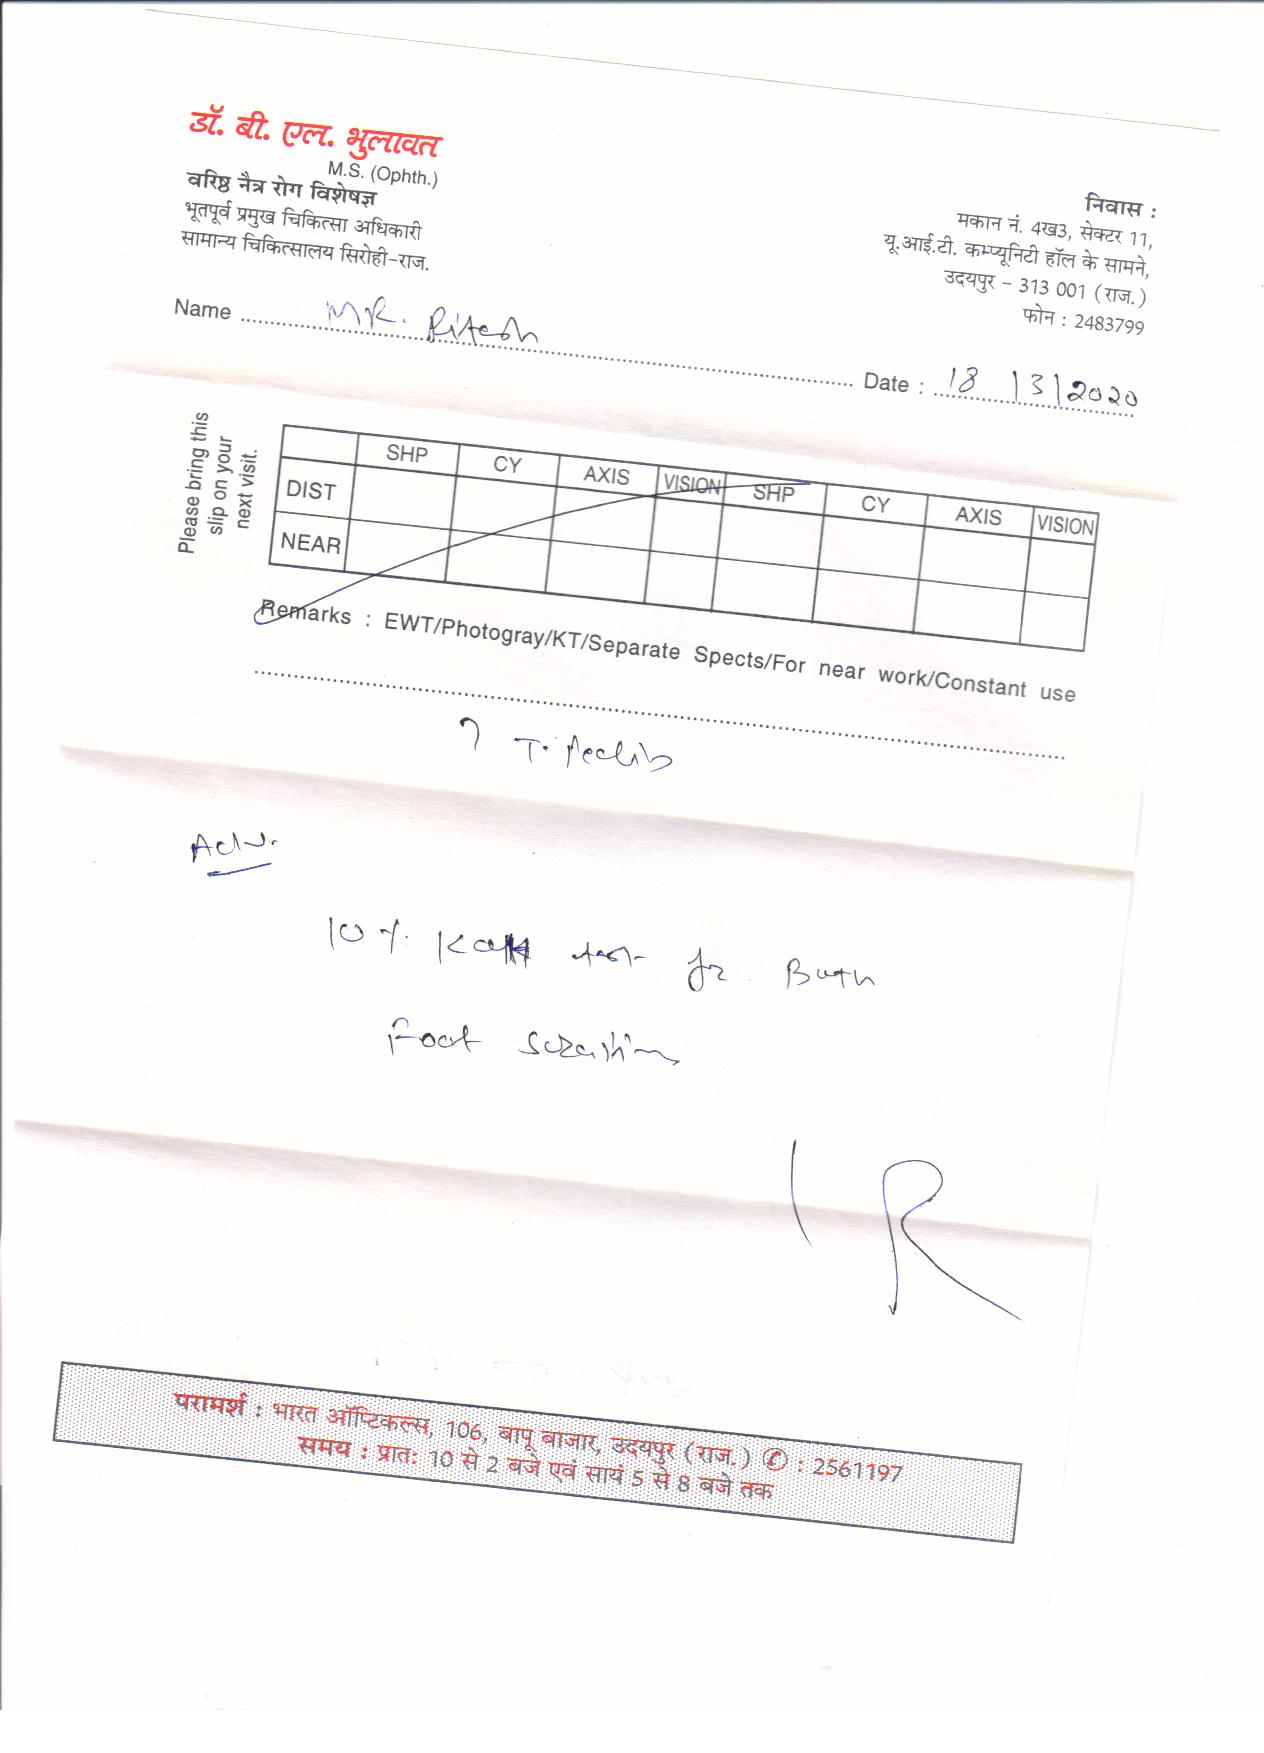 डॉ. बी. एल. भुलावत
M.S. (Ophth.)
वरिष्ठ नैत्र रोग विशेषज्ञ
भूतपूर्व प्रमुख चिकित्सा अधिकारी
सामान्य चिकित्सालय सिरोही-राज.
निवास :
मकान नं. 4ख3, सेक्टर 11,
यू.आई.टी. कम्प्यूनिटी हॉल के सामने,
उदयपुर - 313 001 (राज.)
फोन : 2483799
Name MR. Ritesh
Date : 18/3/2020
Please bring this
slip on your
next visit.
SHP CY AXIS VISION SHP CY AXIS VISION
DIST
NEAR
Remarks : EWT/Photogray/KT/Separate Spects/For near work/Constant use
? T.
Adv.
10 % test for Both
Foot
परामर्श : भारत ऑप्टिकल्स, 106, बापू बाजार, उदयपुर (राज.) ✆ : 2561197
समय : प्रातः 10 से 2 बजे एवं सायं 5 से 8 बजे तक